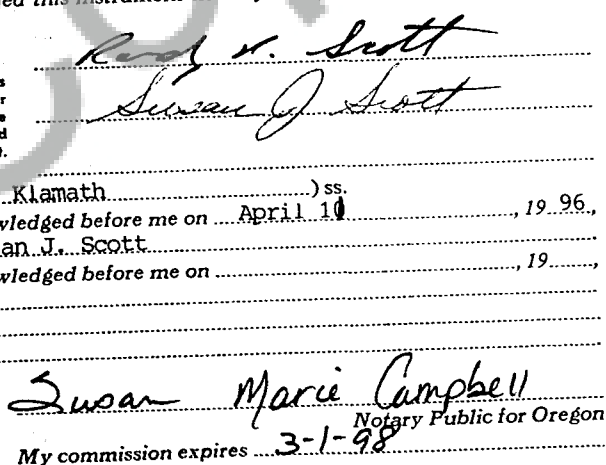 this instrument
Randy W. Scott
s
r
Susan J Scott
e
d
t.
Klamath ) ss.
wledged before me on April 10, 19 96,
an J. Scott
wledged before me on , 19 ,
Susan Marie Campbell
Notary Public for Oregon
My commission expires 3-1-98